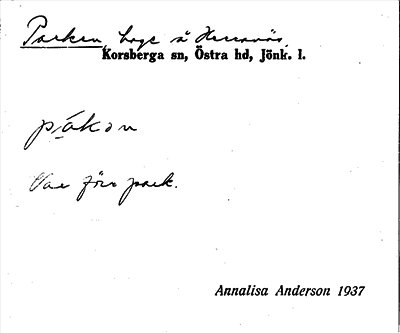 Parken, hage å Herranäs,
Korsberga sn, Östra hd, Jönk. l.
pákən
Var förr park.
Annalisa Anderson 1937